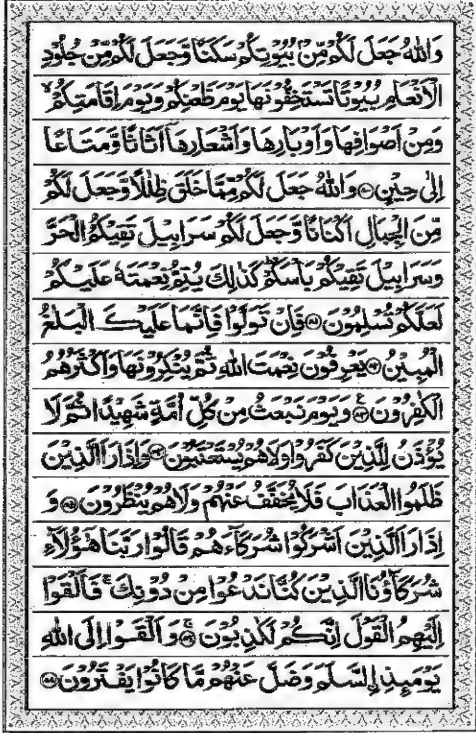 وَاللّٰهُ جَعَلَ لَكُمْ مِّنْۢ بُيُوْتِكُمْ سَكَنًا وَّجَعَلَ لَكُمْ مِّنْ جُلُوْدِ
الْاَنْعَامِ بُيُوْتًا تَسْتَخِفُّوْنَهَا يَوْمَ ظَعْنِكُمْ وَيَوْمَ اِقَامَتِكُمْ ۙ
وَمِنْ اَصْوَافِهَا وَاَوْبَارِهَا وَاَشْعَارِهَاۤ اَثَاثًا وَّمَتَاعًا
اِلٰى حِيْنٍ ۝۸۰ وَاللّٰهُ جَعَلَ لَكُمْ مِّمَّا خَلَقَ ظِلٰلًا وَّجَعَلَ لَكُمْ
مِّنَ الْجِبَالِ اَكْنَانًا وَّجَعَلَ لَكُمْ سَرَابِيْلَ تَقِيْكُمُ الْحَرَّ
وَسَرَابِيْلَ تَقِيْكُمْ بَاْسَكُمْ ؕ كَذٰلِكَ يُتِمُّ نِعْمَتَهٗ عَلَيْكُمْ
لَعَلَّكُمْ تُسْلِمُوْنَ ۝۸۱ فَاِنْ تَوَلَّوْا فَاِنَّمَا عَلَيْكَ الْبَلٰغُ
الْمُبِيْنُ ۝۸۲ يَعْرِفُوْنَ نِعْمَتَ اللّٰهِ ثُمَّ يُنْكِرُوْنَهَا وَاَكْثَرُهُمُ
الْكٰفِرُوْنَ ۝۸۳ وَيَوْمَ نَبْعَثُ مِنْ كُلِّ اُمَّةٍ شَهِيْدًا ثُمَّ لَا
يُؤْذَنُ لِلَّذِيْنَ كَفَرُوْا وَلَا هُمْ يُسْتَعْتَبُوْنَ ۝۸۴ وَاِذَا رَاَ الَّذِيْنَ
ظَلَمُوا الْعَذَابَ فَلَا يُخَفَّفُ عَنْهُمْ وَلَا هُمْ يُنْظَرُوْنَ ۝۸۵ وَ
اِذَا رَاَ الَّذِيْنَ اَشْرَكُوْا شُرَكَآءَهُمْ قَالُوْا رَبَّنَا هٰۤؤُلَآءِ
شُرَكَآؤُنَا الَّذِيْنَ كُنَّا نَدْعُوْا مِنْ دُوْنِكَ ۚ فَاَلْقَوْا
اِلَيْهِمُ الْقَوْلَ اِنَّكُمْ لَكٰذِبُوْنَ ۝۸۶ وَاَلْقَوْا اِلَى اللّٰهِ
يَوْمَئِذِ اِ۟لسَّلَمَ وَضَلَّ عَنْهُمْ مَّا كَانُوْا يَفْتَرُوْنَ ۝۸۷